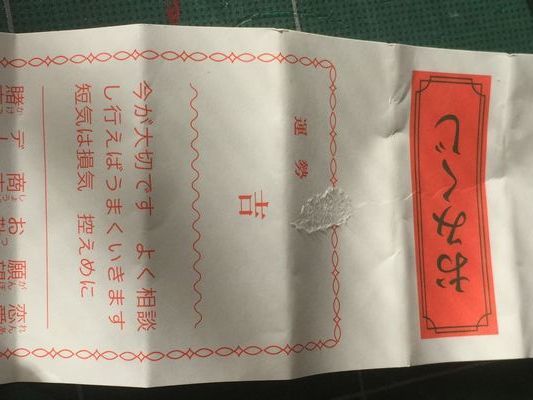 おみくじ
運勢
吉
今が大切です　よく相談
し行えばうまくいきます
短気は損気　控えめに
賭 デ 商 お 願 恋